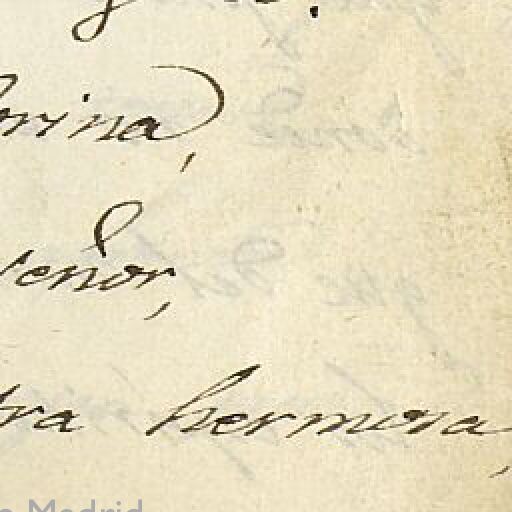 orina,
señor,
tra hermosa,
Madrid